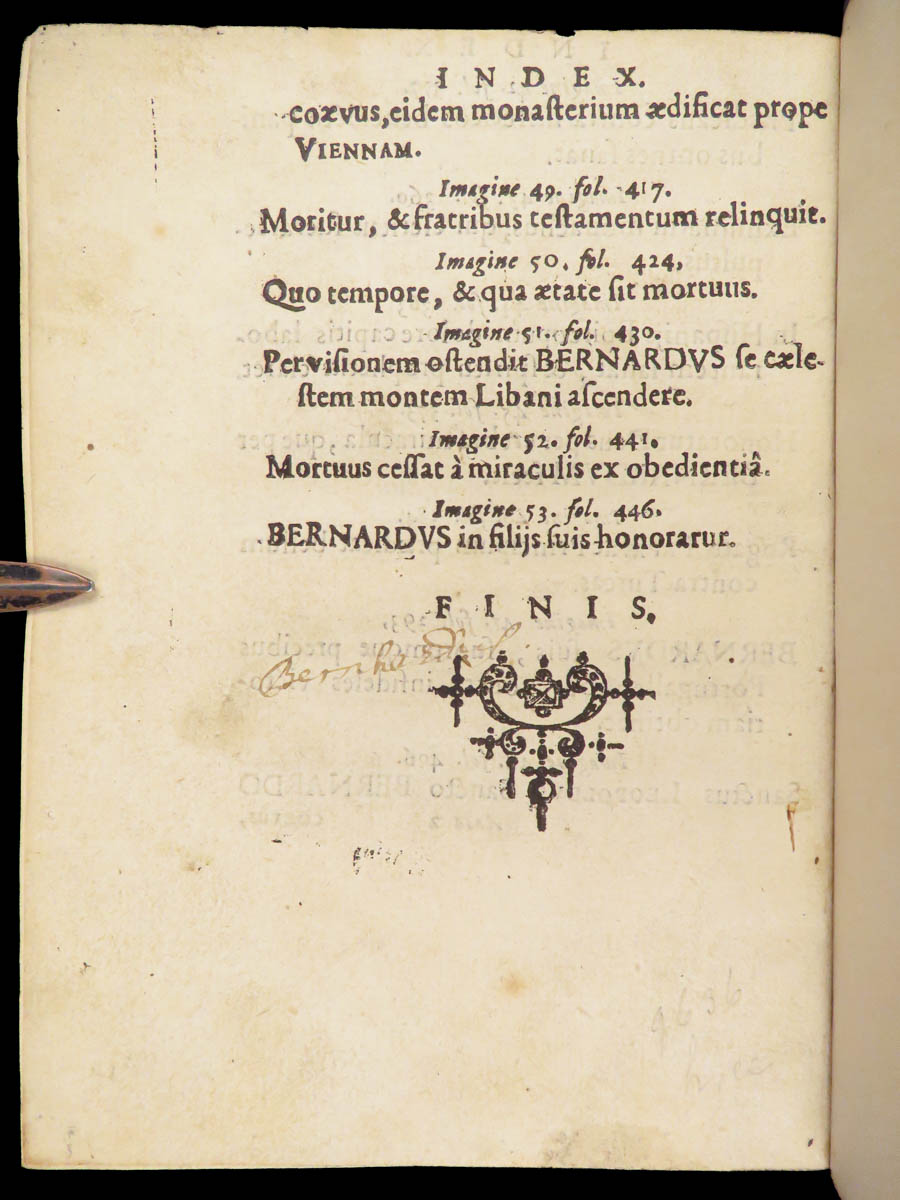 INDEX.
coævus, eidem monasterium ædificat prope
VIENNAM.
Imagine 49. fol. 417.
Moritur, & fratribus testamentum relinquit.
Imagine 50. fol. 424.
Quo tempore, & qua ætate sit mortuus.
Imagine 51. fol. 430.
Per visionem ostendit BERNARDVS se cæle-
stem montem Libani ascendere.
Imagine 52. fol. 441.
Mortuus cessat à miraculis ex obedientiâ.
Imagine 53. fol. 446.
BERNARDVS in filijs suis honoratur.
FINIS.